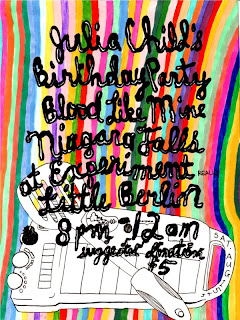 Julia Child's
Birthday Party
Blood Like Mine
Niagara Falls
at Experiment
REAL
Little Berlin
8 pm - 12 am
suggested donation
$5
SAT. AUG